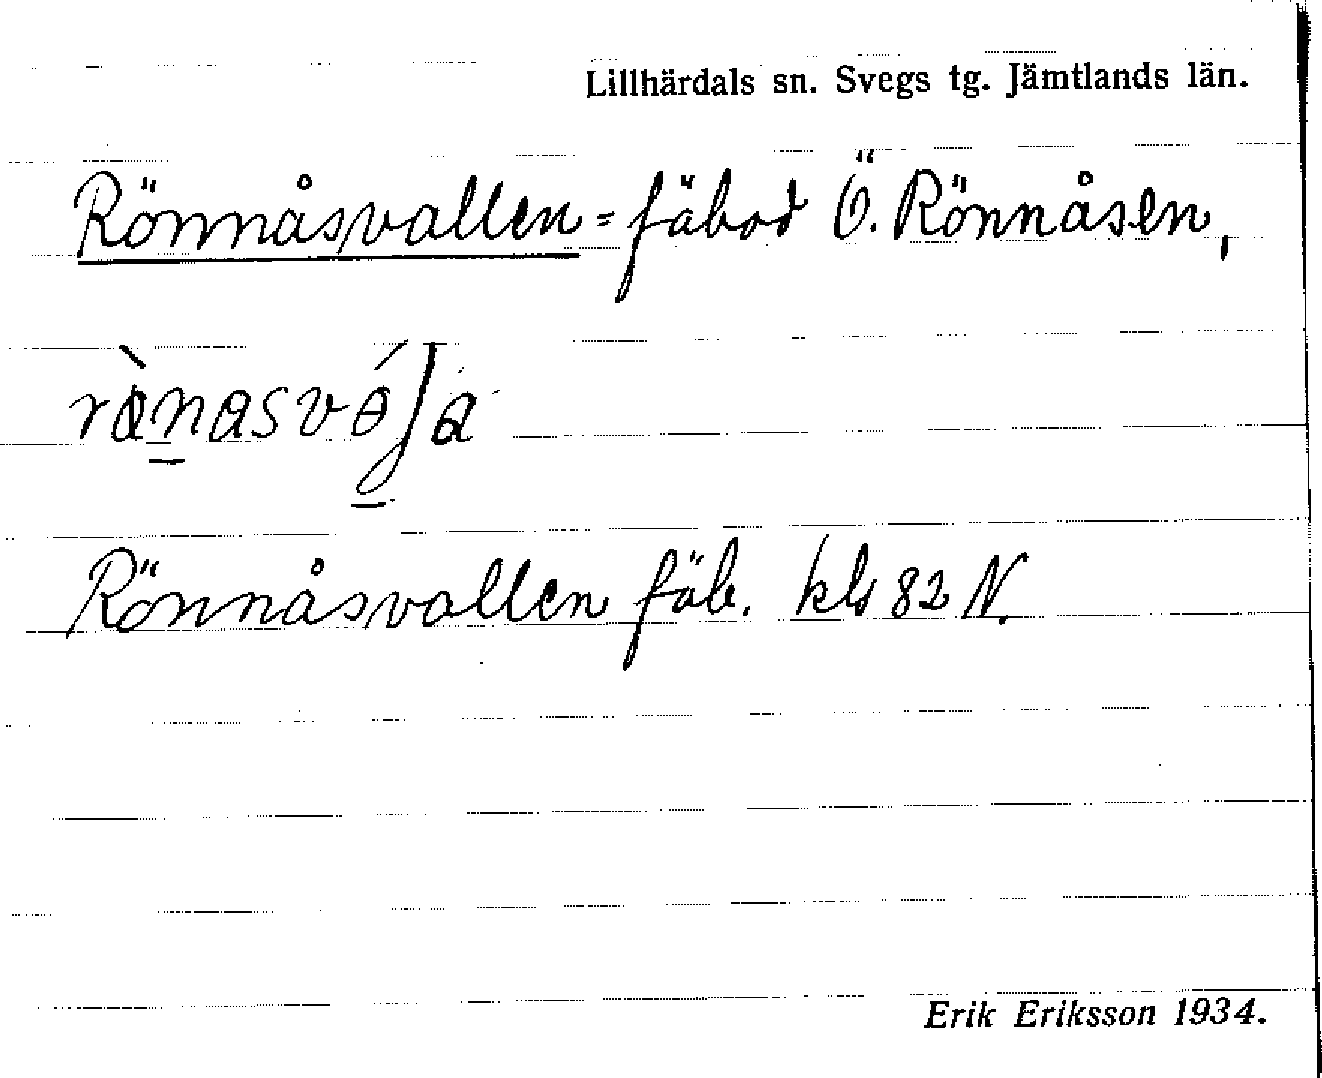 Lillhärdals sn. Svegs tg. Jämtlands län.
Rönnåsvallen = fäbod Ö. Rönnåsen,
Rönnåsvallen fäb. kls 82 N.
Erik Eriksson 1934.